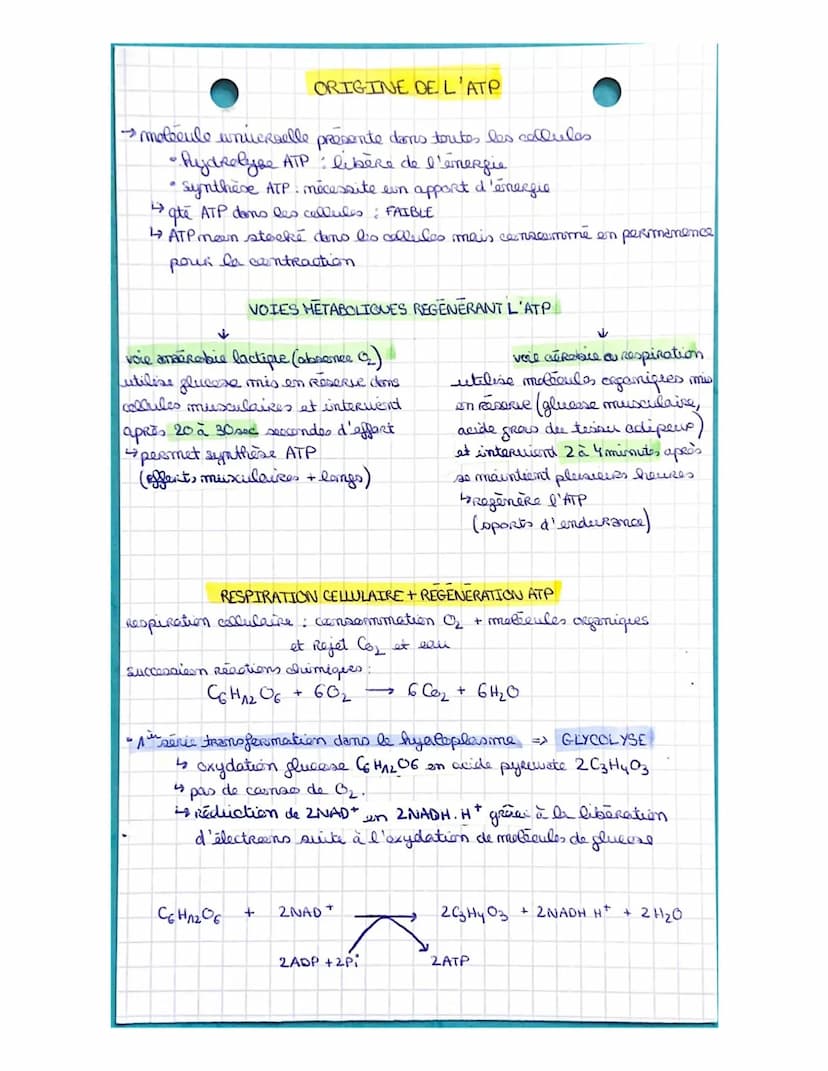 ORIGINE DE L'ATP
→ molécule universelle présente dans toutes les cellules
• hydrolyse ATP : libère de l'énergie
• synthèse ATP : nécessite un apport d'énergie
↳ qté ATP dans les cellules : FAIBLE
↳ ATP non stocké dans les cellules mais consommé en permanence
pour la contraction
VOIES MÉTABOLIQUES RÉGÉNÉRANT L'ATP
↓
voie anaérobie lactique (absence O2)
utilise glucose mis en réserve dans
cellules musculaires et intervient
après 20 à 30sec secondes d'effort
↳ permet synthèse ATP
(efforts musculaires + longs)
↓
voie aérobie ou respiration
utilise molécules organiques mis
en réserve (glucose musculaire,
acide gras du tissu adipeux)
et intervient 2 à 4 minutes après
se maintient plusieurs heures
↳ régénère l'ATP
(sports d'endurance)
RESPIRATION CELLULAIRE + RÉGÉNÉRATION ATP
respiration cellulaire : consommation O2 + molécules organiques
et rejet CO2 et eau
succession réactions chimiques :
C6H12O6 + 6O2 → 6CO2 + 6H2O
• 1ère série transformation dans le hyaloplasme => GLYCOLYSE
↳ oxydation glucose C6H12O6 en acide pyruvate 2C3H4O3
↳ pas de conso de O2.
↳ réduction de 2NAD+ en 2NADH.H+ grâce à la libération
d'électrons suite à l'oxydation de molécules de glucose
C6H12O6 + 2NAD+ → 2C3H4O3 + 2NADH H+ + 2H2O
2ADP + 2Pi 2ATP